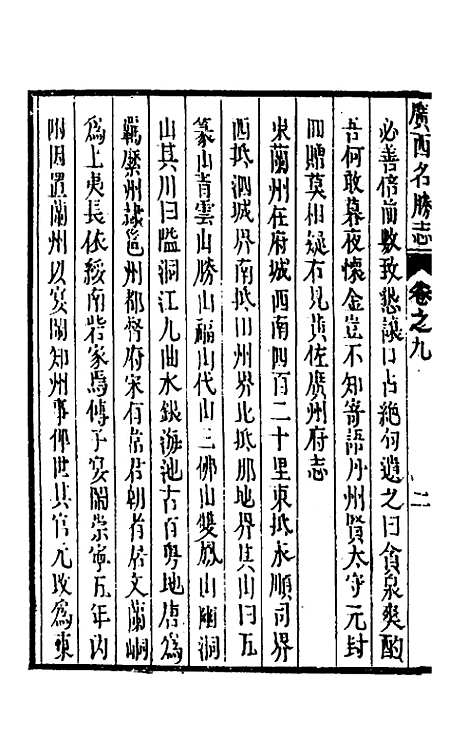 廣西名勝志 卷之九 二
必善倍前數致懇讓口占絶句遺之曰貪泉爽酌
吾何敢暮夜懷金豈不知寄語丹州賢太守元封
回贈莫相疑右見黃佐廣州府志
東蘭州在府城西南四百二十里東抵永順司界
西抵泗城界南抵田州界北抵那地界其山曰五
篆山青雲山勝山福山代山三佛山雙鳳山幽洞
山其川曰隘洞江九曲水銀海池古百粤地唐爲
羈縻州隷邕州都督府宋有常君朝者居文蘭峒
爲上夷長依綏南砦家焉傳子宴閙崇寧五年内
附因置蘭州以宴閙知州事俾世其官元改爲東